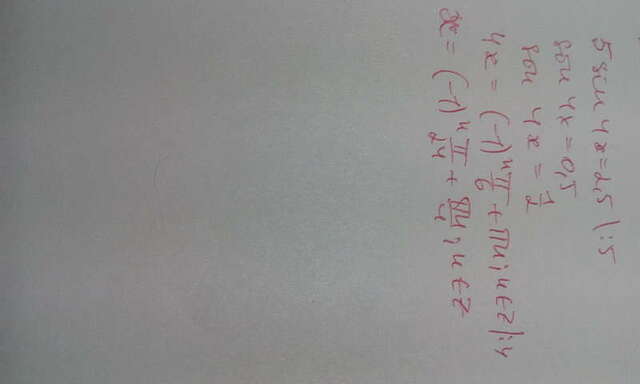 5 sin 4x = 2,5 |:5
sin 4x = 0,5
sin 4x = 1/2
4x = (-1)ⁿ π/6 + πn; n ∈ Z |:4
x = (-1)ⁿ π/24 + πn/4; n ∈ Z